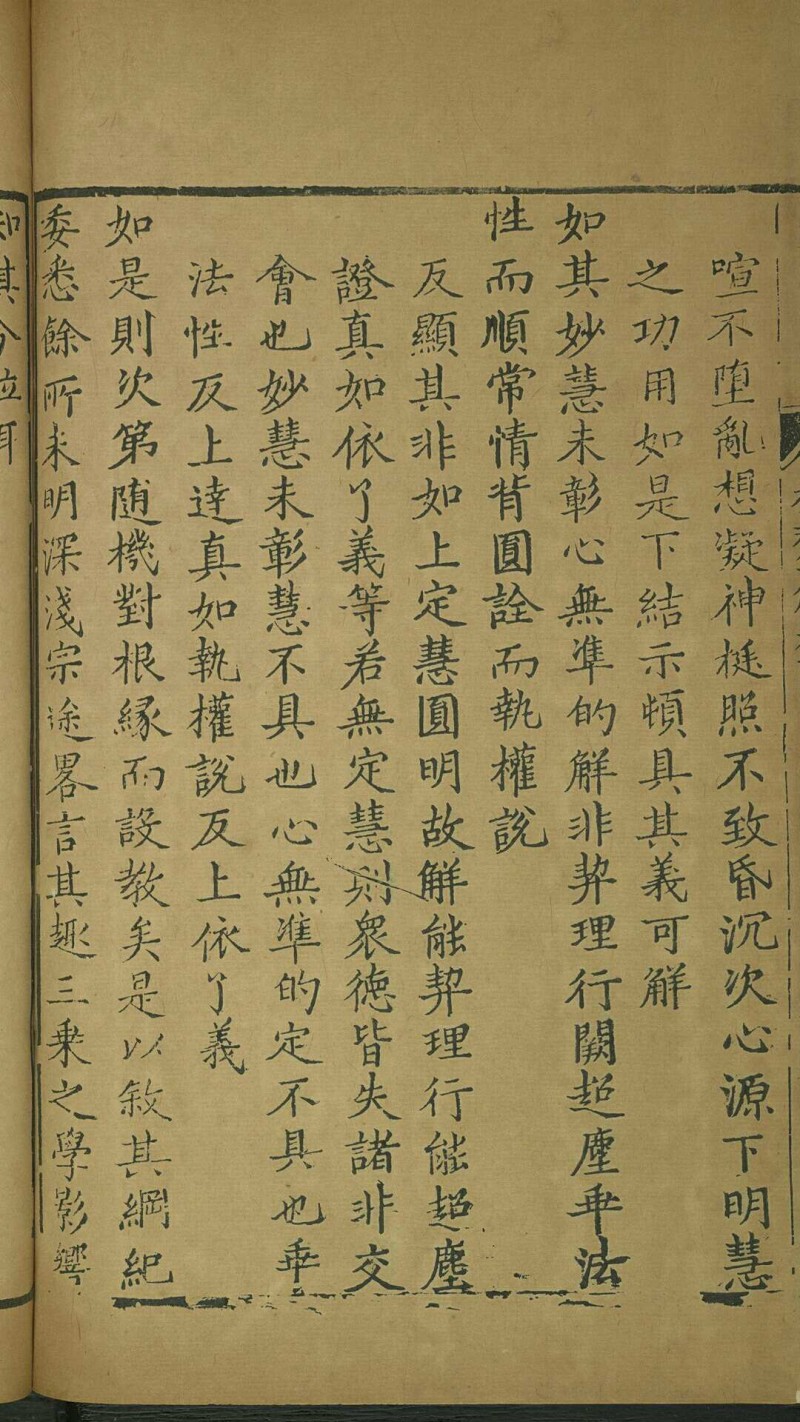 喧不墮亂想凝神挺照不致昏沉次心源下明慧
之功用如是下結示頓具其義可解
如其妙慧未彰心無準的解非契理行闕超塵乖法
性而順常情背圓詮而執權說
反顯其非如上定慧圓明故解能契理行能超塵
證真如依了義等若無定慧則衆德皆失諸非交
會也妙慧未彰慧不具也心無準的定不具也乖
法性反上達真如執權說反上依了義
如是則次第随機對根緣而設教矣是以敘其綱紀
委悉餘所未明深淺宗途畧言其趣三乗之學影響
知其分位耳